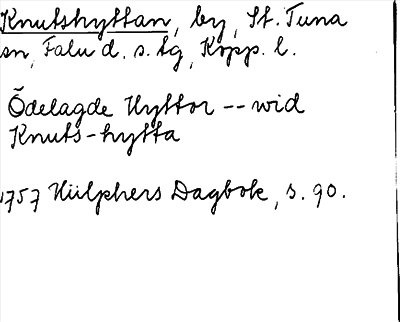 Knutshyttan, by, St. Tuna
sn, Falu d. s. tg, Kopp. l.
Ödelagde Hyttor -- wid
Knuts-hytta
1757 Hülphers Dagbok, s. 90.